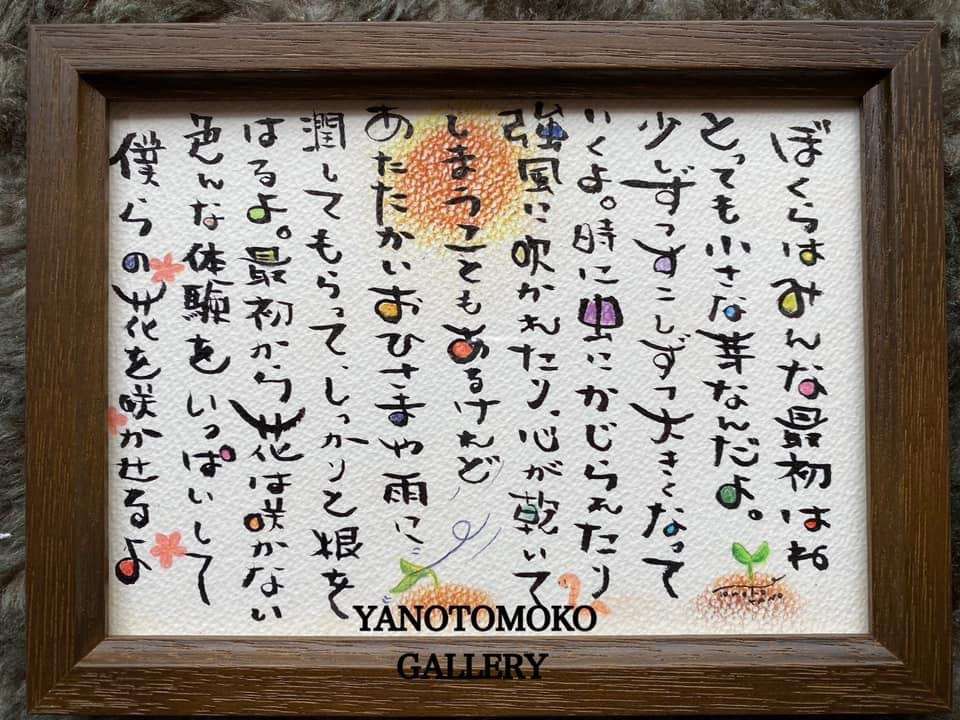 ぼくらはみんな最初はね
とっても小さな芽なんだよ。
少しずつすこしずつ大きくなって
いくよ。時に虫にかじられたり
強風に吹かれたり、心が乾いて
しまうこともあるけれど
あたたかいおひさまや雨に
潤してもらって、しっかりと根を
はるよ。最初から花は咲かない
色んな体験をいっぱいして
僕らの花を咲かせるよ
Tomoko
YANO
YANOTOMOKO
GALLERY